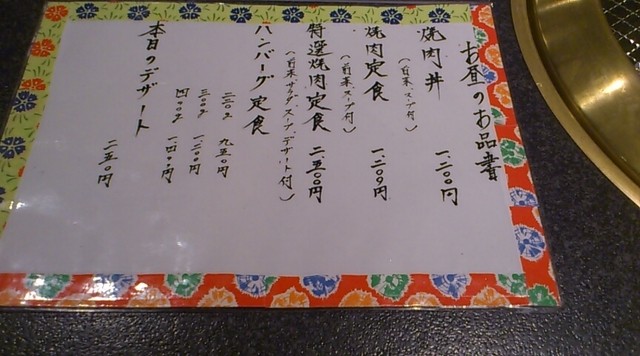 お昼のお品書
焼肉丼 一、二〇〇円
(前菜、スープ付)
焼肉定食 一、二〇〇円
(前菜、スープ付)
特選焼肉定食 二、五〇〇円
(前菜、サラダ、スープ、デザート付)
ハンバーグ定食
二〇〇g 九五〇円
三〇〇g 一、二〇〇円
四〇〇g 一、四〇〇円
本日のデザート 二五〇円